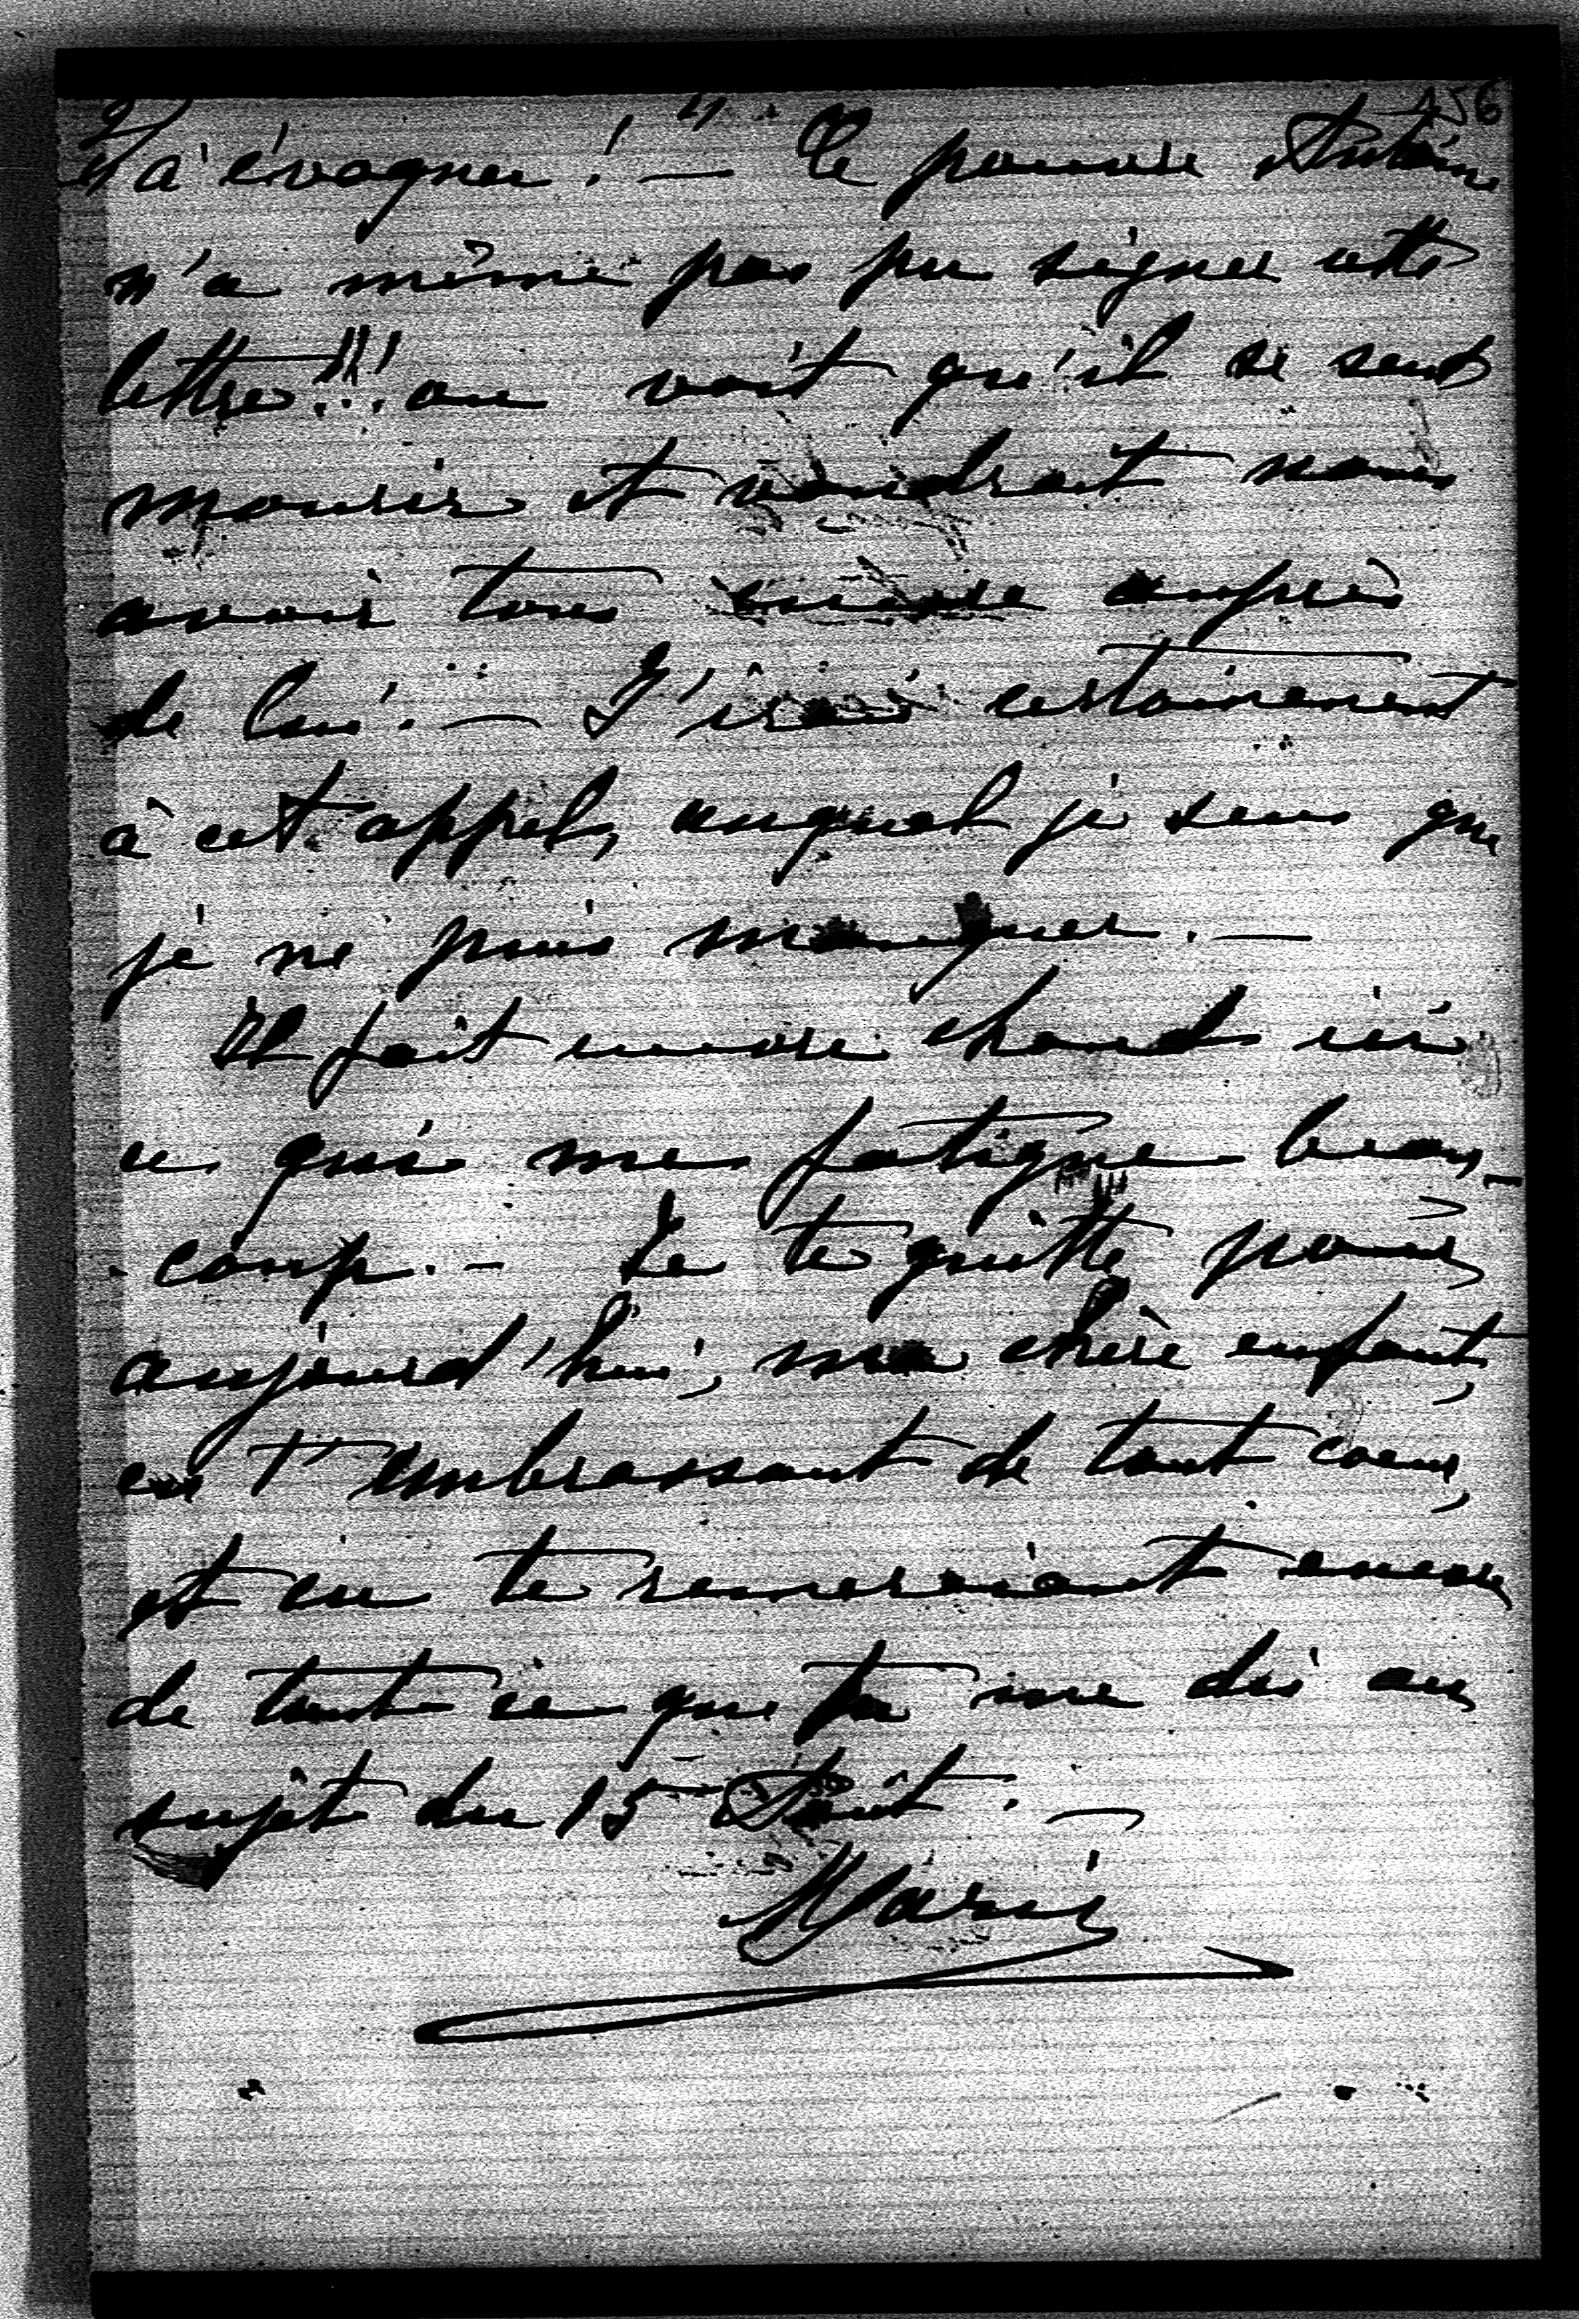 2/ 456
à évoquer! — Ce pauvre Antoine
n'a même pas pu signer cette
lettre!!! on voit qu'il se sent
mourir et voudrait nous
avoir tous encore auprès
de lui. — J'irai certainement
à cet appel, auquel je sens que
je ne puis manquer. —
Il fait encore chaud ici
ce qui me fatigue beau-
coup. — Je te quitte pour
aujourd'hui, ma chère enfant,
en t'embrassant de tout coeur,
et en te remerciant encore
de tout ce que tu me dis au
sujet du 15 Août. —
Marie